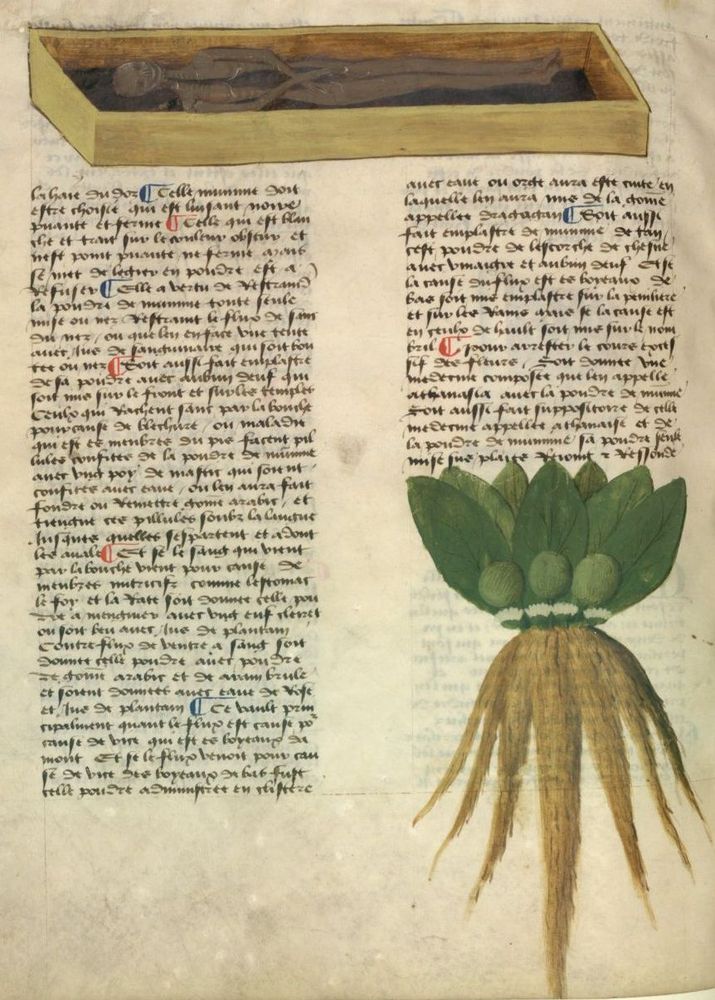 la haie du dos Telle mumme doit
estre choisie qui est luisant noire
puante et ferme Celle qui est blan
che et trait sur le couleur obscur et
nest point puante ne ferme mais
se met de legier en poudre est a
Refuser Elle a vertu de Restraindre
la poudre de mumme toute seule
mise ou nez Restraint le flux de sanc
du nez, ou que len en face une tente
avec Jus de sanguinaire qui soit bou
tee ou nez Soit aussi fait emplastre
de sa poudre avec aubun deuf qui
soit mis sur le front et sur les temples
Ceulx qui Rachent sanc par la bouche
pour cause de blechure, ou maladie
qui est es membres du pis facent pil
lules confites de la poudre de mumme
avec ung poy de mastic qui soient
confites avec eaue, ou len aura fait
fondre ou Remettre gome arabic, et
tiengne ces pillules soubz la langue
Jusques quelles sespartent et adont
les avale Et se le sang qui vient
par la bouche vient pour cause de
membres nutritifz comme lestomac
le foy et la Rate soit donnee celle pou
dre a mengier avec ung euf cleret
ou soit beu avec Jus de plantain
Contre flux de ventre a sang soit
donnee celle poudre avec poudre
de gome arabic et de aram brule
et soient donnees avec eaue de Rose
et Jus de plantain Ce vault prin
cipalment quant le flux est cause po
cause de vice qui est es boyeaux da
mont Et se le flux venoit pour cau
se de vice des boyeaux da bas fust
celle poudre administree en clistere
avec eaue ou orge aura este cuite en
laquelle len aura mis de la gome
appellee dragagan Soit aussi
fait emplastre de mumme de tan
cest poudre de lescorche de chesne
avec vinaigre et aubun deuf Et se
la cause du flux est es boyeaux de
bas soit mis emplastre sur la peniliere
et sur les Rains mais se la cause est
en ceulx de hault soit mis sur le nom
bril pour arrester le cours exces
sif des fleurs, Soit donnee une
medecine composee que len appelle
athanasia avec la poudre de mumme
Soit aussi fait suppositoire de celle
medecine appellee athanaise et de
la poudre de mumme, sa poudre seule
mise sus plaies Reioint et Resoude